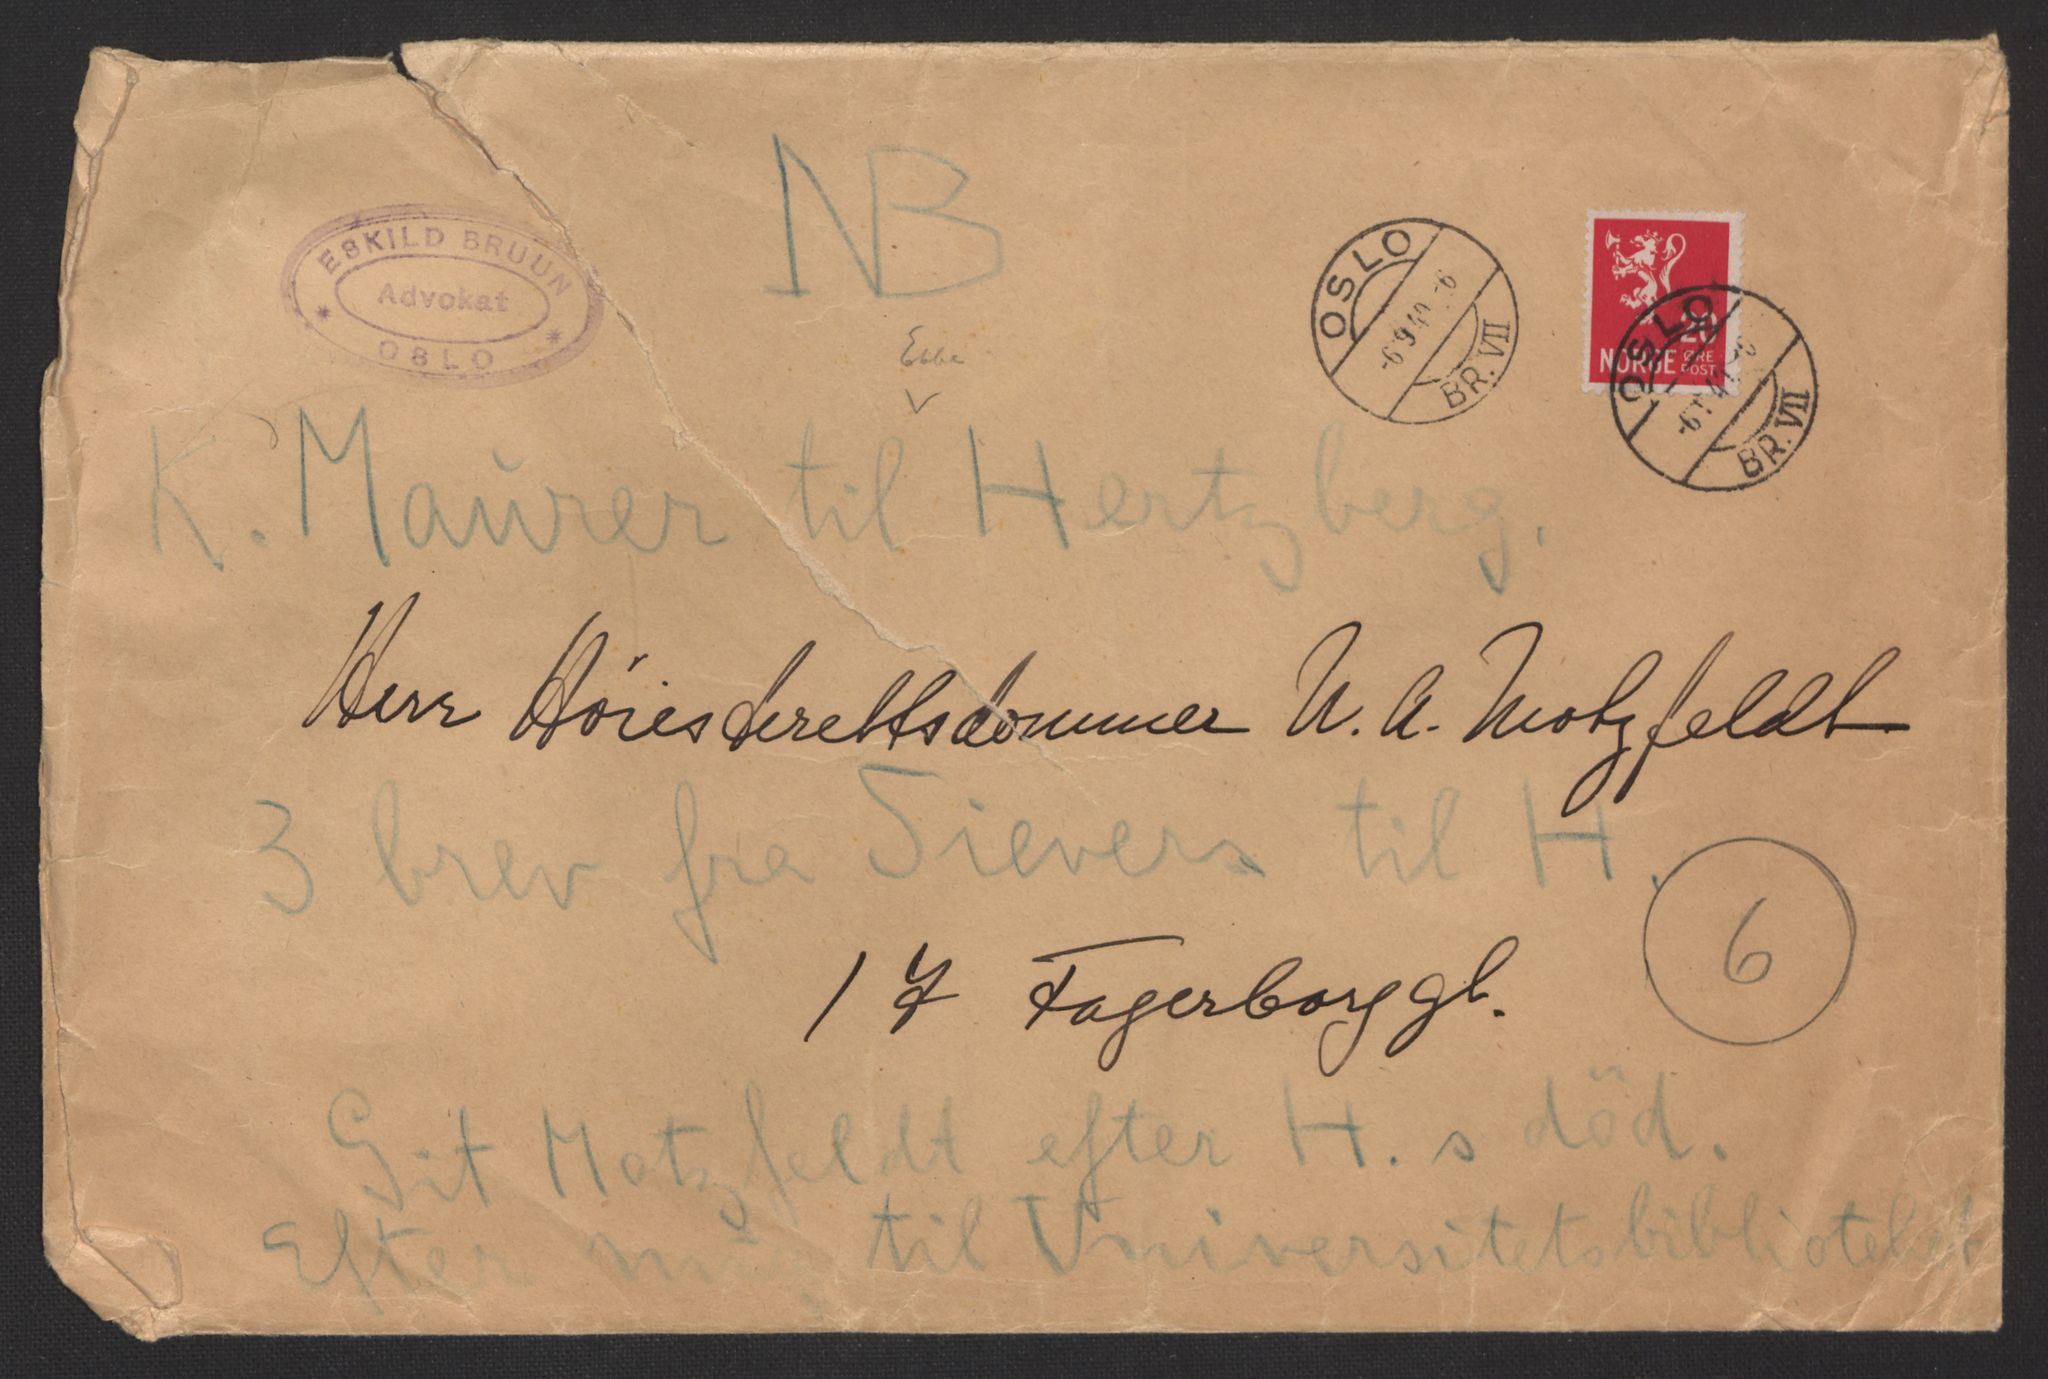 NB
ESKILD BRUUN
Advokat
* OSLO *
OSLO
-6.9.40.-6
BR. VII
20
NORGE ØRE
POST
OSLO
BR. VII
Ebbe
V
K. Maurer til Hertzberg.
Herr Höiesterettsdommer U. A. Motzfeldt
3 brev fra Sievers til H.
6
17 Fagerborggt.
Git Motzfeldt efter H. s död.
Efter mig til Universitetsbiblioteket